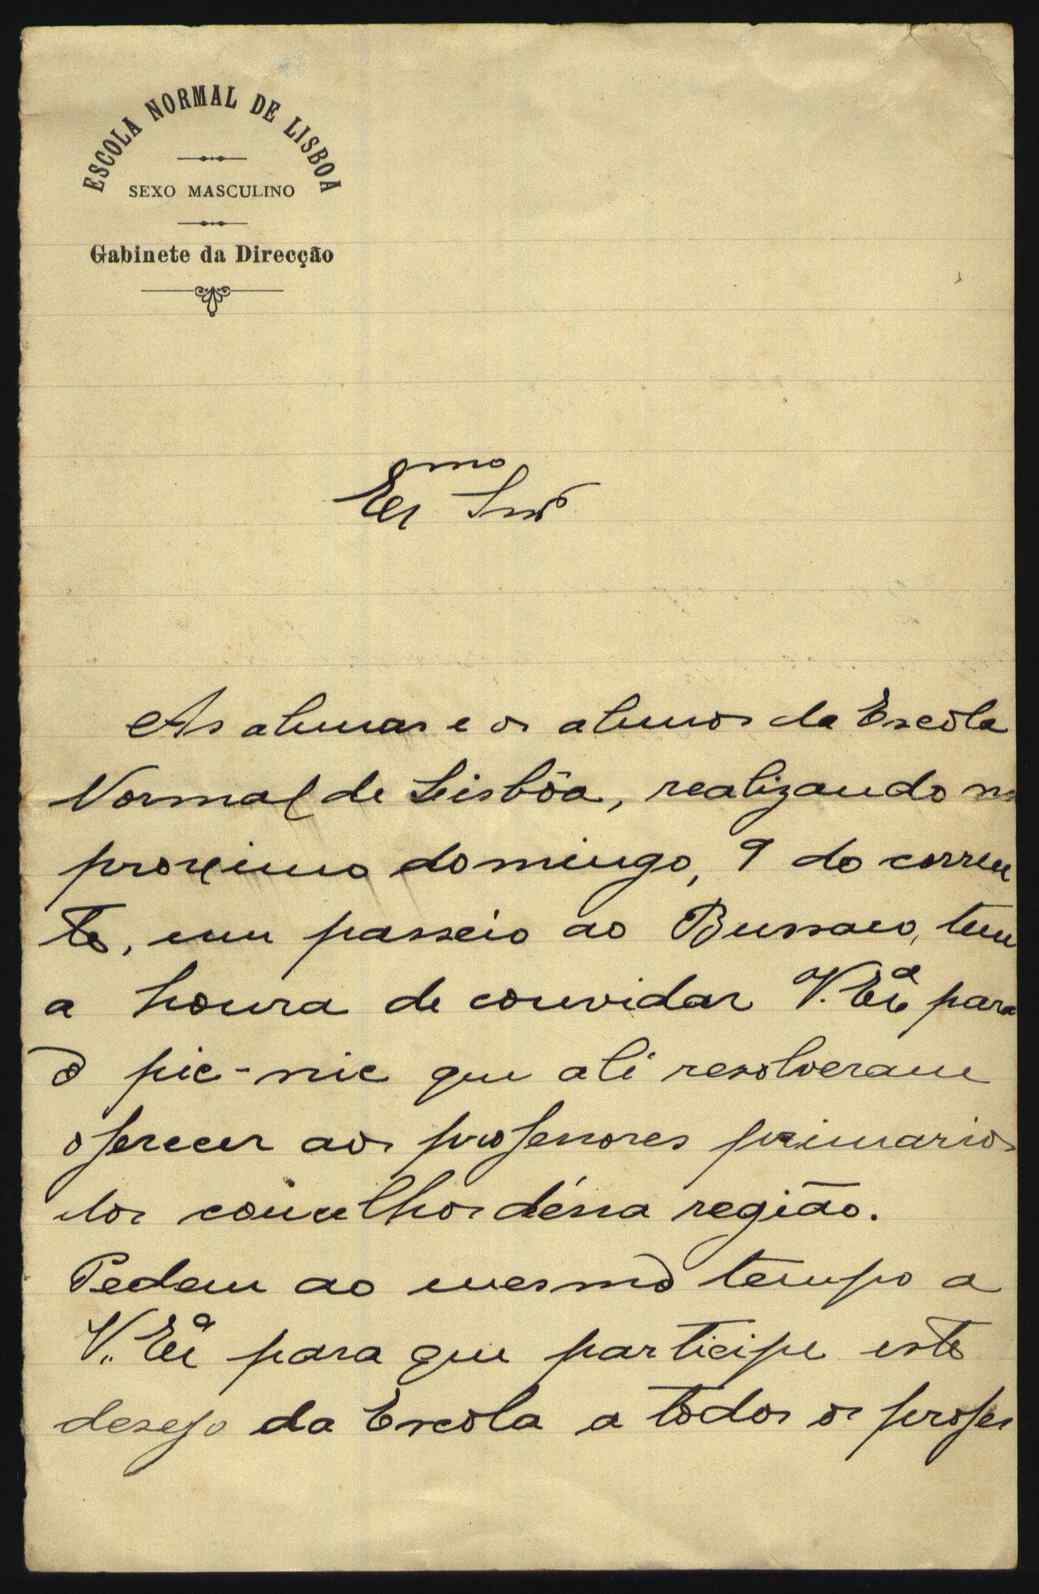 ESCOLA NORMAL DE LISBOA
SEXO MASCULINO
Gabinete da Direcção
Exmo Snr
As alumas e os alumos da Escola
Normal de Lisbôa, realizando no
proximo domingo, 9 do corren
te, um passeio ao Bussaco, tem
a honra de convidar V. Exa para
o pic-nic que ali resolveram
oferecer aos professores primarios
dos concelhos déssa região.
Pedem ao mesmo tempo a
V. Exa para que participe este
desejo da Escola a todos os profes